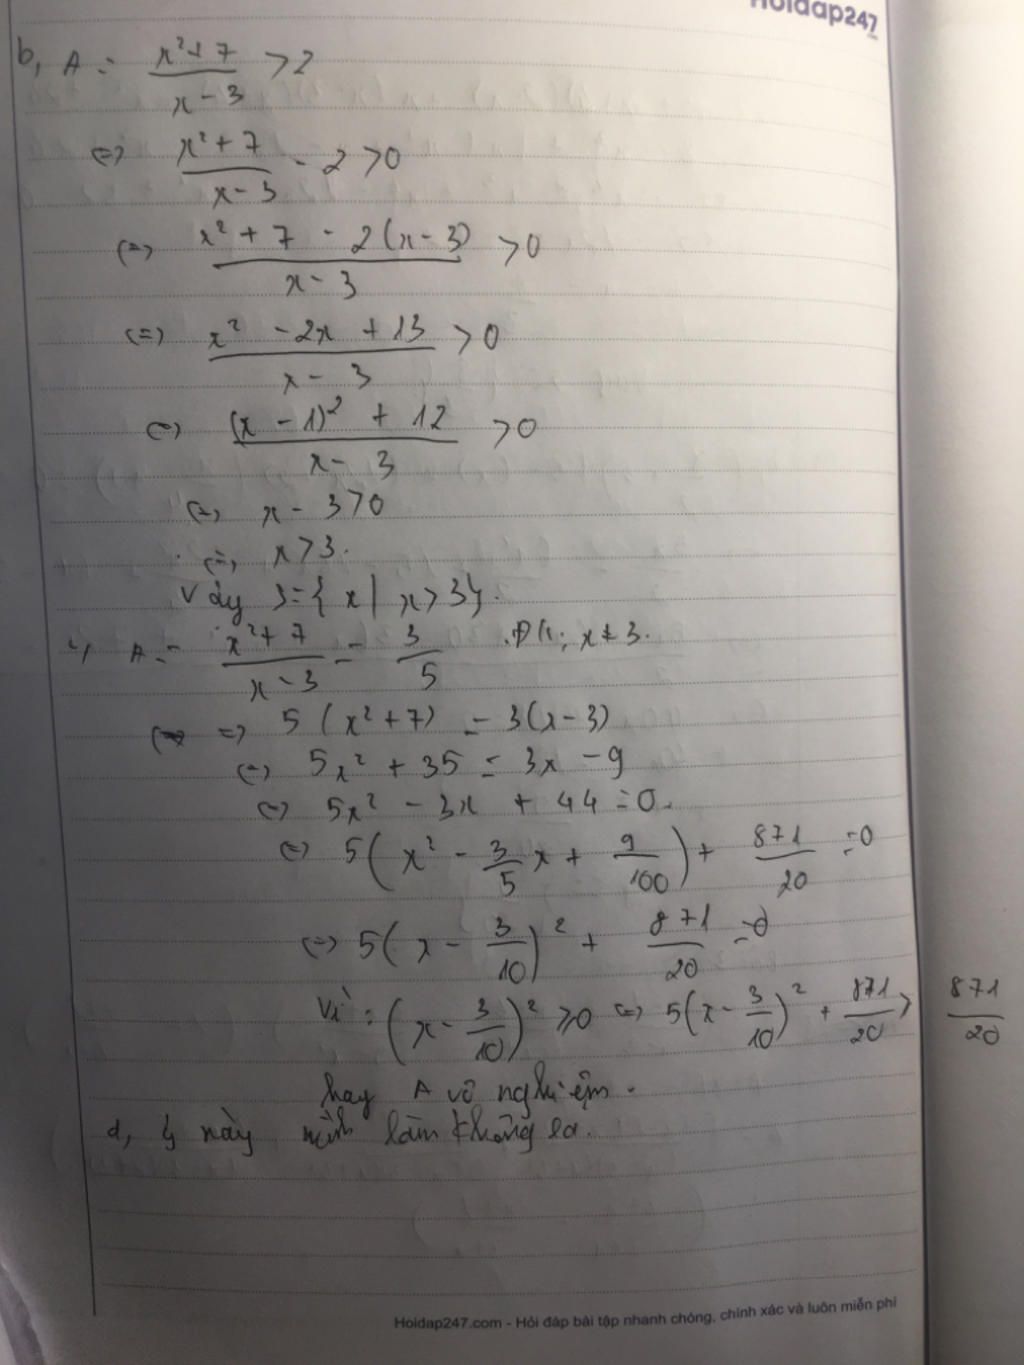 Hoidap247
b, A = \frac{x²+7}{x-3} > 2
(=) \frac{x²+7}{x-3} - 2 > 0
(=) \frac{x²+7-2(x-3)}{x-3} > 0
(=) \frac{x²-2x+13}{x-3} > 0
(=) \frac{(x-1)²+12}{x-3} > 0
(=) x-3>0
(=) x>3.
Vậy S={x| x>3}.
c, A = \frac{x²+7}{x-3} = \frac{3}{5} .ĐK: x≠3.
=) 5(x²+7) = 3(x-3)
(=) 5x²+35 = 3x-9
(=) 5x²-3x+44=0.
(=) 5(x² - \frac{3}{5}x + \frac{9}{100}) + \frac{871}{20} =0
(=) 5(x - \frac{3}{10})² + \frac{871}{20} =0
Vì: (x - \frac{3}{10})² ≥0 (=) 5(x - \frac{3}{10})² + \frac{871}{20} > \frac{871}{20}
hay A vô nghiệm.
d, ý này mình làm không ra.
Hoidap247.com - Hỏi đáp bài tập nhanh chóng, chính xác và luôn miễn phí